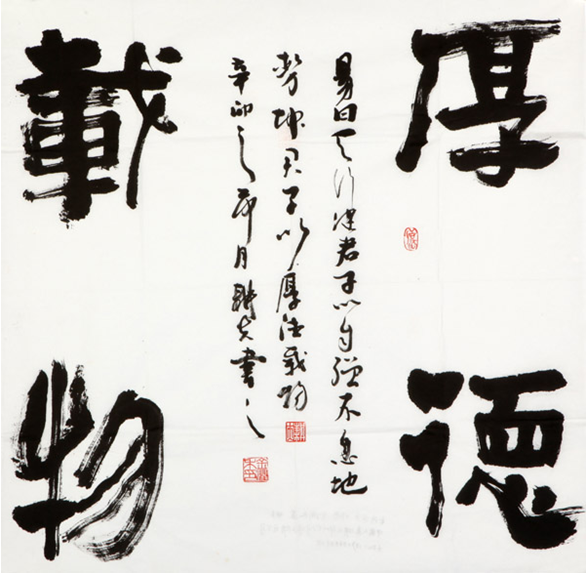 厚德
易曰天行健君子以自強不息地
勢坤君子以厚德載物
辛卯之月書之
載物